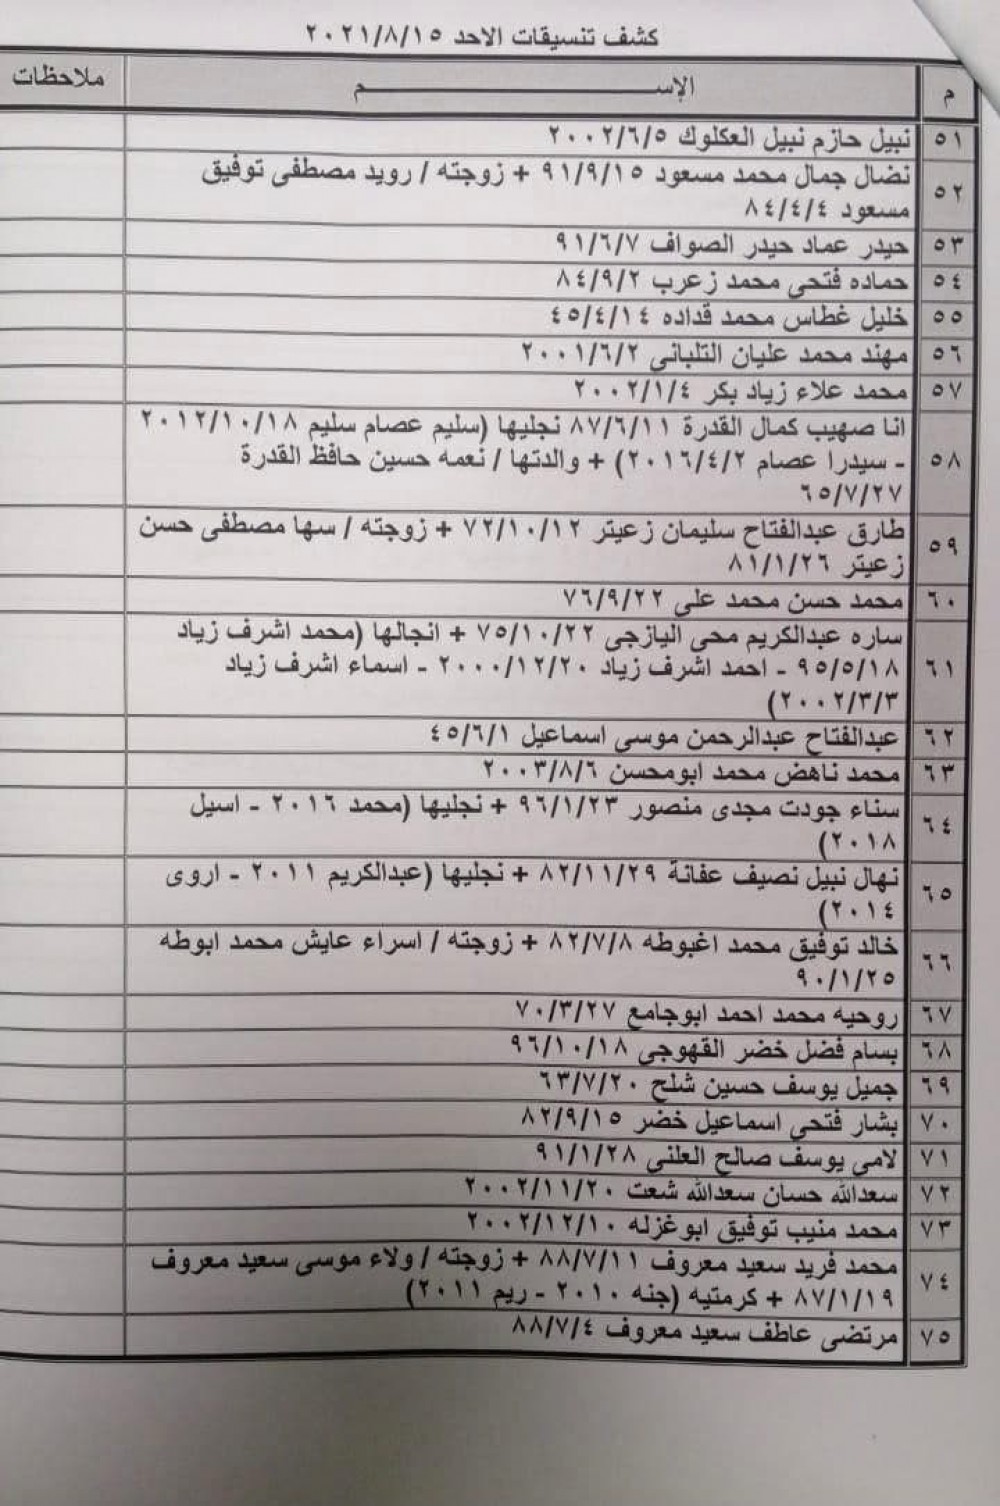 كشف تنسيقات الاحد ٢٠٢١/٨/١٥
م الإســـــــم ملاحظات
٥١ نبيل حازم نبيل العكلوك ٢٠٠٢/٦/٥
٥٢ نضال جمال محمد مسعود ٩١/٩/١٥ + زوجته / رويد مصطفى توفيق
مسعود ٨٤/٤/٤
٥٣ حيدر عماد حيدر الصواف ٩١/٦/٧
٥٤ حماده فتحى محمد زعرب ٨٤/٩/٢
٥٥ خليل غطاس محمد قداده ٤٥/٤/١٤
٥٦ مهند محمد عليان التلبانى ٢٠٠١/٦/٢
٥٧ محمد علاء زياد بكر ٢٠٠٢/١/٤
٥٨ انا صهيب كمال القدرة ٨٧/٦/١١ نجليها (سليم عصام سليم ٢٠١٢/١٠/١٨
- سيدرا عصام ٢٠١٦/٤/٢) + والدتها / نعمه حسين حافظ القدرة
٦٥/٧/٢٧
٥٩ طارق عبدالفتاح سليمان زعيتر ٧٢/١٠/١٢ + زوجته / سها مصطفى حسن
زعيتر ٨١/١/٢٦
٦٠ محمد حسن محمد على ٧٦/٩/٢٢
٦١ ساره عبدالكريم محى اليازجى ٧٥/١٠/٢٢ + انجالها (محمد اشرف زياد
٩٥/٥/١٨ - احمد اشرف زياد ٢٠٠٠/١٢/٢٠ - اسماء اشرف زياد
٢٠٠٢/٣/٣)
٦٢ عبدالفتاح عبدالرحمن موسى اسماعيل ٤٥/٦/١
٦٣ محمد ناهض محمد ابومحسن ٢٠٠٣/٨/٦
٦٤ سناء جودت مجدى منصور ٩٦/١/٢٣ + نجليها (محمد ٢٠١٦ - اسيل
٢٠١٨)
٦٥ نهال نبيل نصيف عفانة ٨٢/١١/٢٩ + نجليها (عبدالكريم ٢٠١١ - اروى
٢٠١٤)
٦٦ خالد توفيق محمد اغبوطه ٨٢/٧/٨ + زوجته / اسراء عايش محمد ابوطه
٩٠/١/٢٥
٦٧ روحيه محمد احمد ابوجامع ٧٠/٣/٢٧
٦٨ بسام فضل خضر القهوجى ٩٦/١٠/١٨
٦٩ جميل يوسف حسين شلح ٦٣/٧/٢٠
٧٠ بشار فتحى اسماعيل خضر ٨٢/٩/١٥
٧١ لامى يوسف صالح العلنى ٩١/١/٢٨
٧٢ سعدالله حسان سعدالله شعت ٢٠٠٢/١١/٢٠
٧٣ محمد منيب توفيق ابوغزله ٢٠٠٢/١٢/١٠
٧٤ محمد فريد سعيد معروف ٨٨/٧/١١ + زوجته / ولاء موسى سعيد معروف
٨٧/١/١٩ + كرمتيه (جنه ٢٠١٠ - ريم ٢٠١١)
٧٥ مرتضى عاطف سعيد معروف ٨٨/٧/٤